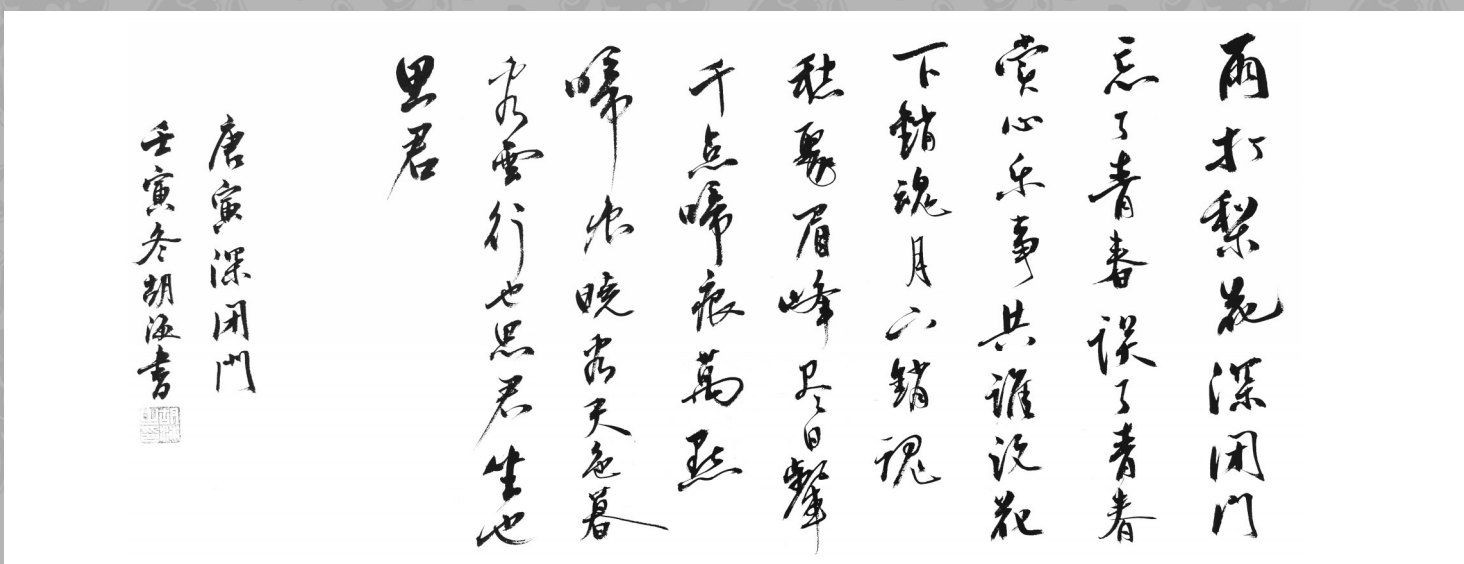 雨打梨花深闭门
忘了青春误了青春
赏心乐事共誰花
下銷魂月下銷魂
愁聚眉峰尽日颦
千点啼痕萬點
啼痕晓看天色暮
看雲行也思君坐也
思君
唐寅深闭門
壬寅冬胡書